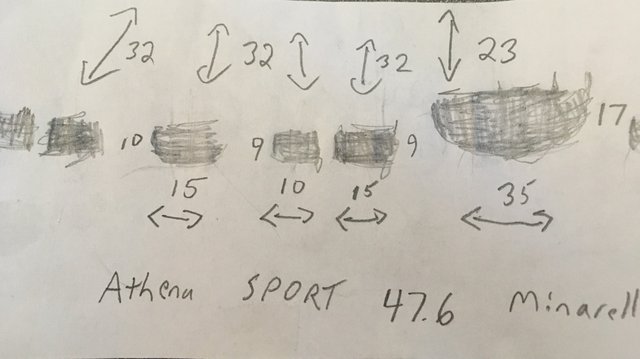 32 32 32 23
10 9 9 17
15 10 15 35
Athena SPORT 47.6 Minarell